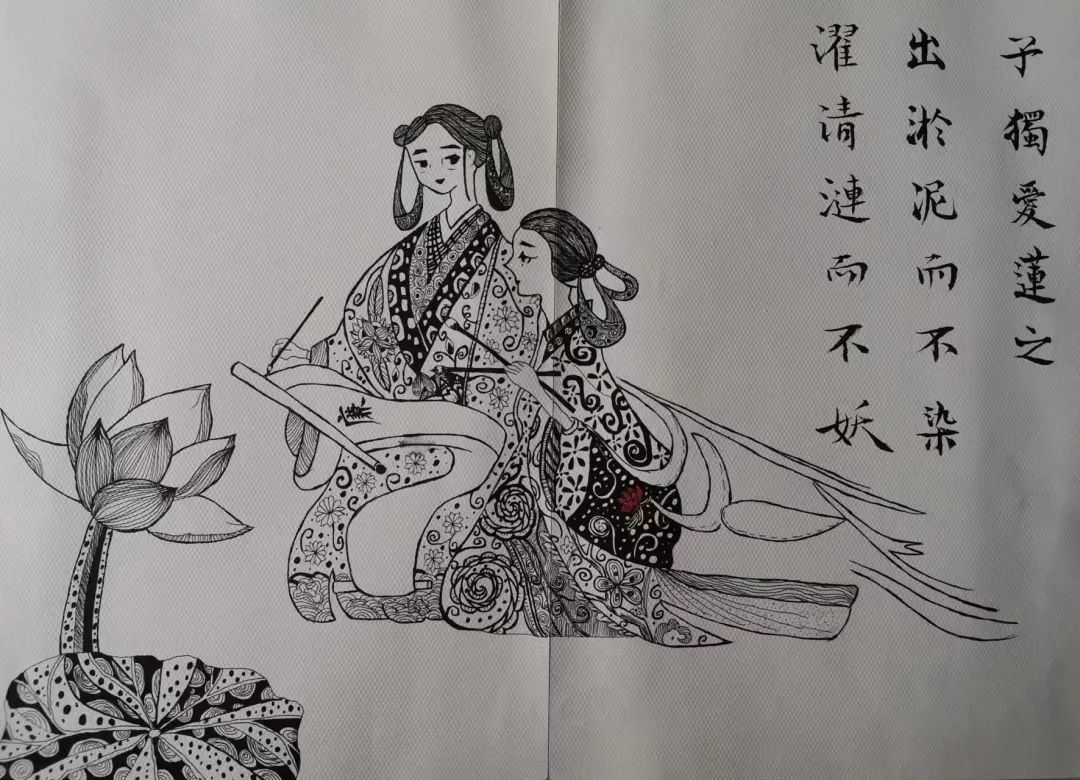 予獨愛蓮之
出淤泥而不染
濯清漣而不妖
廉